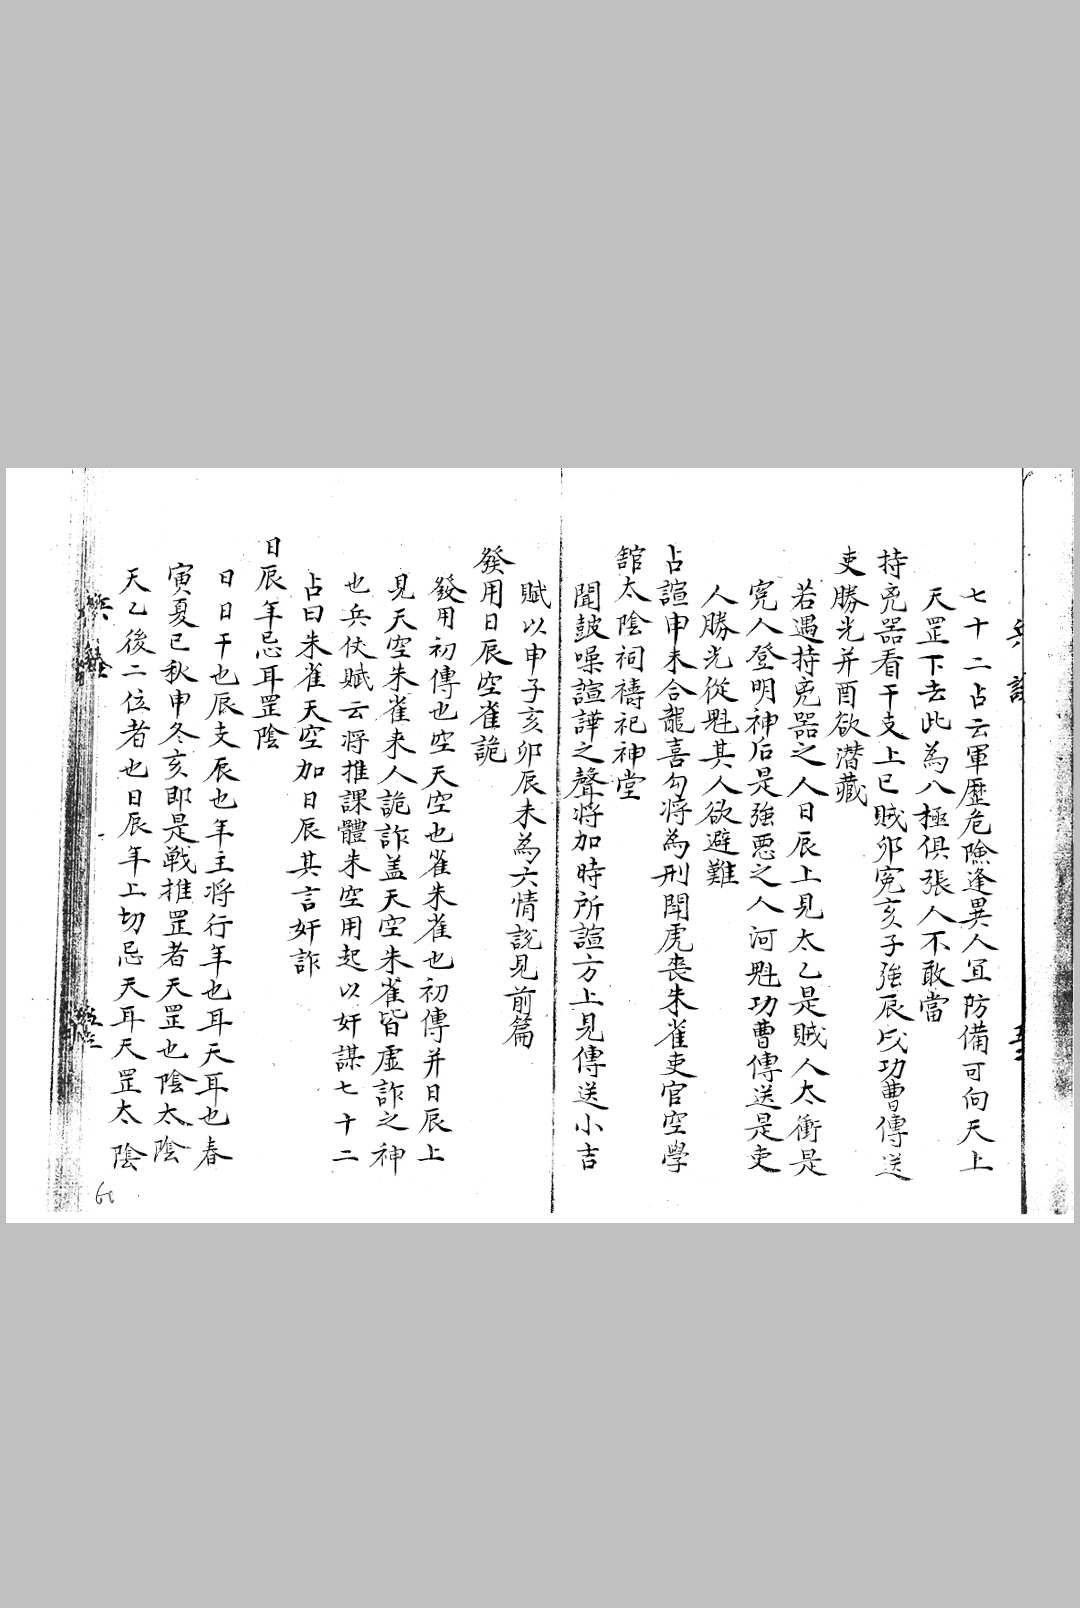 七十二占云軍歷危險逢異人冝防備可向天上
天罡下去此為八極俱張人不敢當
持兇器看干支上巳賊卯寃亥子強辰戌功曹傳送
吏勝光并酉欲潜藏
若遇持兇器之人日辰上見太乙是賊人太衝是
寃人登明神后是強惡之人河魁功曹傳送是吏
人勝光從魁其人欲避難
占諠申未合龍喜勾將為刑鬪虎喪朱雀吏官空學
舘太陰祠禱祀神堂
聞鼓噪諠譁之聲將加時所諠方上見傳送小吉
賦以申子亥卯辰未為六情說見前篇
發用日辰空雀詭
發用初傳也空天空也雀朱雀也初傳并日辰上
見天空朱雀來人詭詐盖天空朱雀皆虛詐之神
也兵仗賦云將推課體朱空用起以奸謀七十二
占曰朱雀天空加日辰其言奸詐
日辰年忌耳罡陰
日日干也辰支辰也年主將行年也耳天耳也春
寅夏巳秋申冬亥即是戰推罡者天罡也陰太陰
天乙後二位者也日辰年上切忌天耳天罡太陰